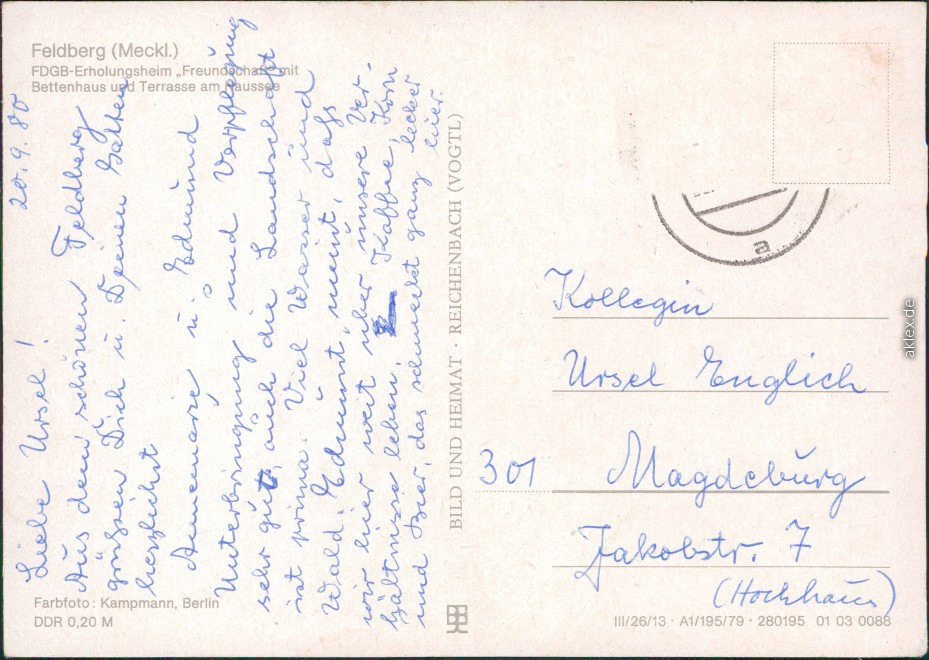 Feldberg (Meckl.)
FDGB-Erholungsheim „Freundschaft" mit
Bettenhaus und Terrasse am Haussee
20. 9. 80
Liebe Ursel!
Aus dem schönen Feldberg
grüßen Dich u. Deinen Gatten
herzlichst
Annemarie u. Edmund
Unterbringung und Verpflegung
sehr gut, auch die Landschaft
ist prima. Viel Wasser und
Wald. Edmund meint, dass
wir hier weit über unsere Ver-
hältnisse leben. Kaffee, Korn
und Bier, das schmeckt ganz lecker
hier.
Farbfoto: Kampmann, Berlin
DDR 0,20 M
BILD UND HEIMAT · REICHENBACH (VOGTL)
a
Kollegin
Ursel Englich
301 Magdeburg
Jakobstr. 7
(Hochhaus)
III/26/13 · A1/195/79 · 280195 01 03 0088
aklex.de